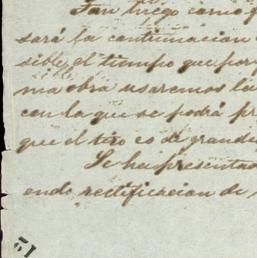 Tan luego como
sará la continuacion
sible, el tiempo que por
ma obra usaremos la
con la que se podrá pr
que el tiro es de grande
Se ha presentado
ando rectificacion de
15